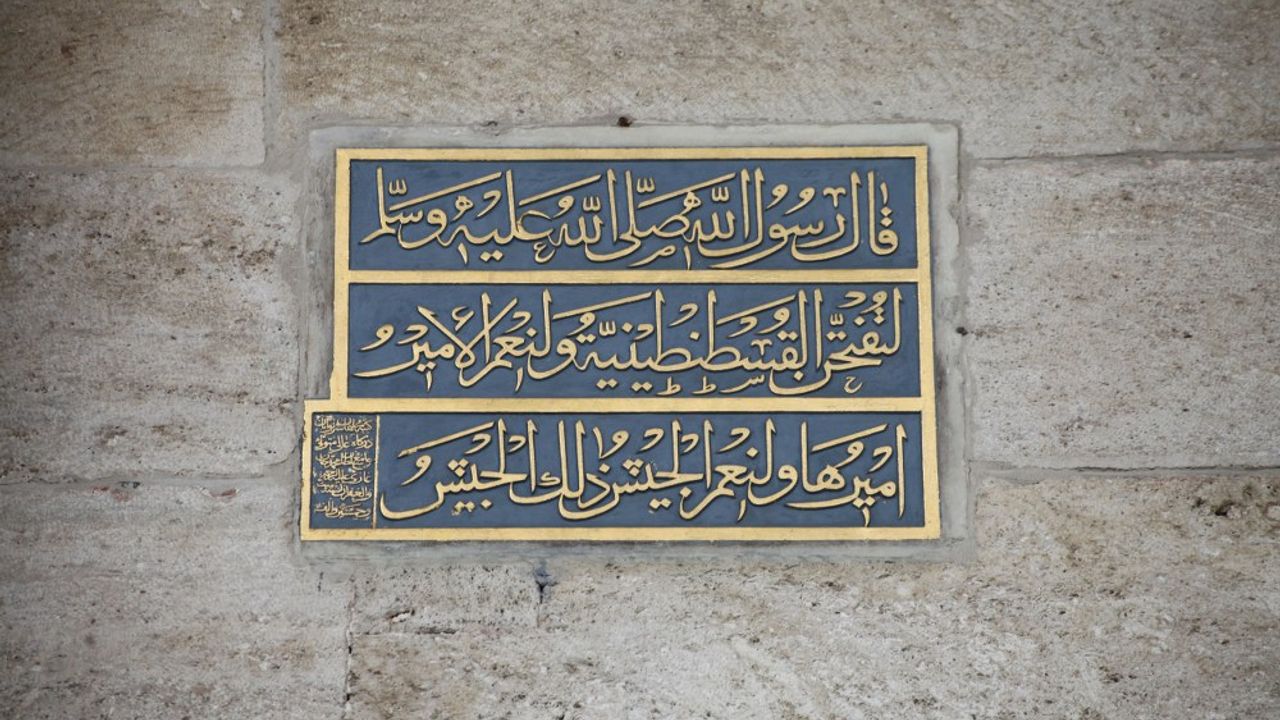 قال رسول الله صلى الله عليه وسلم
لتفتحن القسطنطينية ولنعم الأمير
اميرها ولنعم الجيش ذلك الجيش